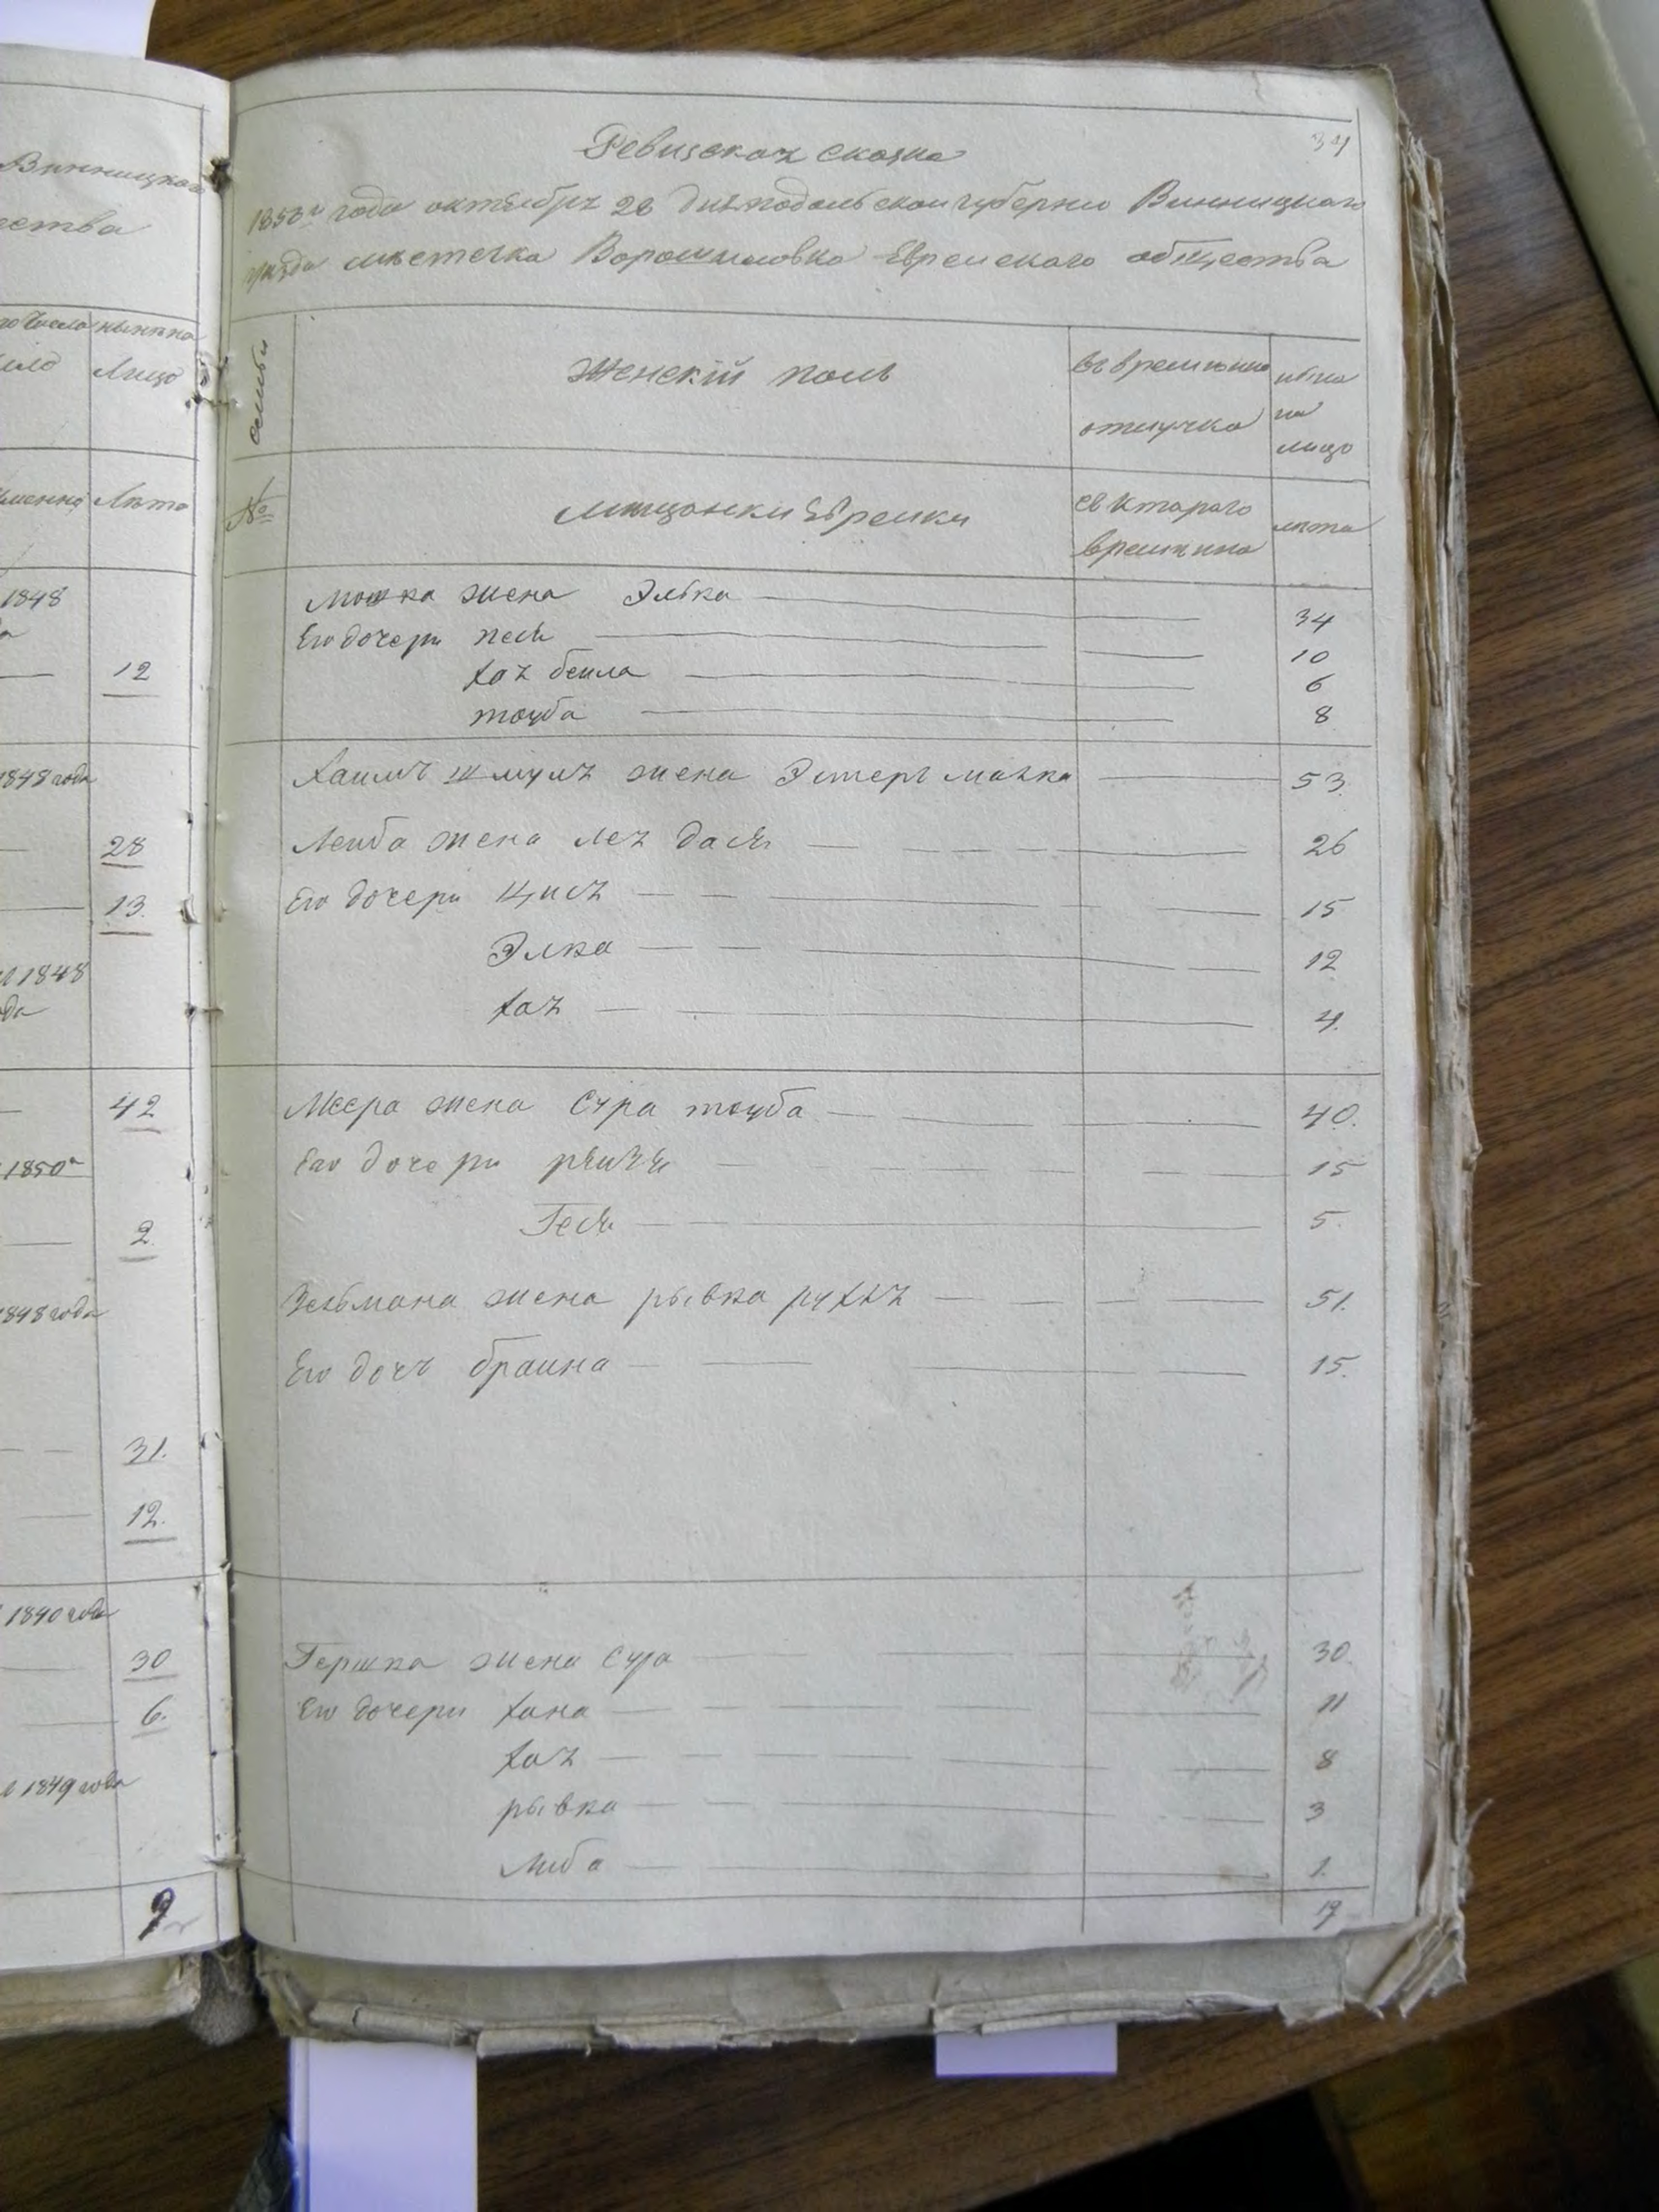 Винницкой
ества
1848
12
1848 года
28
13.
1848
да
42
1850го
2
1848 года
31.
12.
1840 года
30
6.
1849 года
9
34
Ревизская сказка
1850го года октября 28 дня подольской губернии Винницкаго
уезда местечка Ворошиловка Евреиского общества
семьи
Женскій полъ
Въ временно
отлучка
ныне
на
лицо
№
мещанки Евреики
съКтораго
времнина
лета
Мошка жена Элька 34
Его дочери песя 10
хая бейла 6
тоуба 8
Хаимъ шмуль жена Эстерь малка 53.
Лейба жена лея дася 26
Его дочери Цися 15
Элка 12
хая 4.
Меера жена Сура тоуба 40.
Его дочери 15
Геся 5.
Зельмана жена рывка рухля 51.
Его дочъ браина 15.
Гершка жена Сура 30.
Его дочери хана 11
хая 8
рывка 3
Либа 1.
19